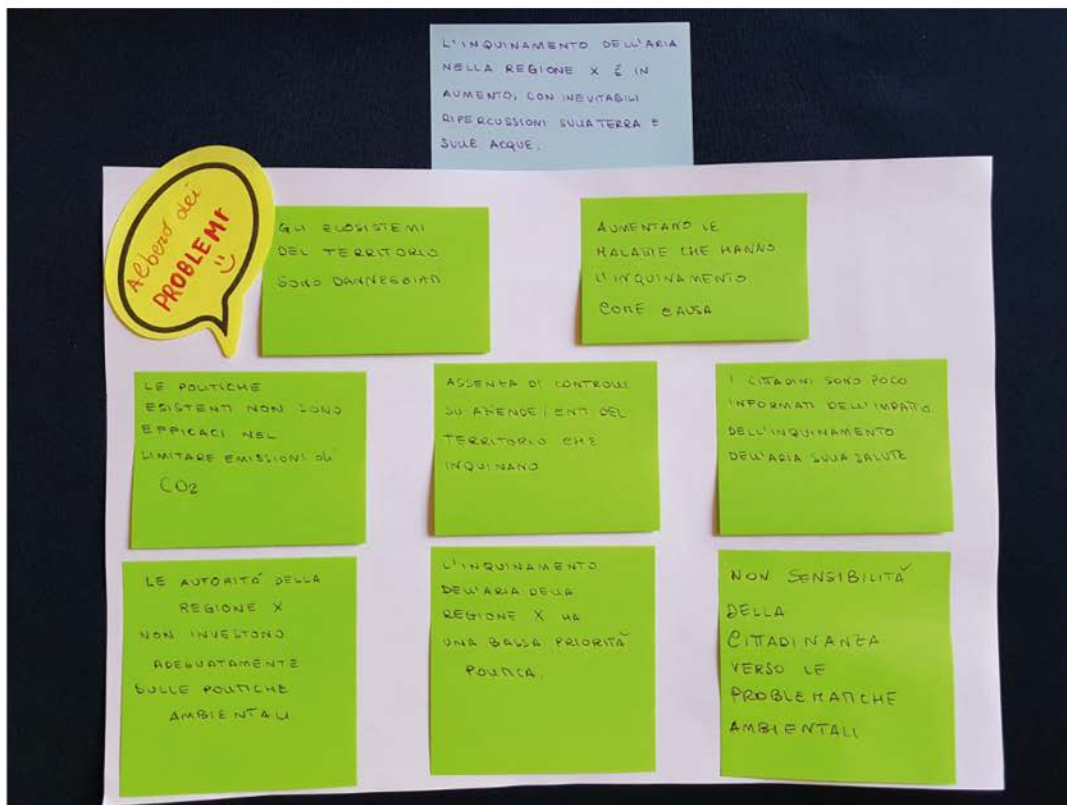 L'INQUINAMENTO DELL'ARIA
NELLA REGIONE X È IN
AUMENTO, CON INEVITABILI
RIPERCUSSIONI SULLA TERRA E
SULLE ACQUE.
Albero dei
PROBLEMI
GLI ECOSISTEMI
DEL TERRITORIO
SONO DANNEGGIATI
AUMENTANO LE
MALATTIE CHE HANNO
L'INQUINAMENTO
COME CAUSA
LE POLITICHE
ESISTENTI NON SONO
EFFICACI NEL
LIMITARE EMISSIONI DI
CO2
ASSENZA DI CONTROLLI
SU AZIENDE/ENTI DEL
TERRITORIO CHE
INQUINANO
I CITTADINI SONO POCO
INFORMATI DELL'IMPATTO
DELL'INQUINAMENTO
DELL'ARIA SULLA SALUTE
LE AUTORITÁ DELLA
REGIONE X
NON INVESTONO
ADEGUATAMENTE
SULLE POLITICHE
AMBIENTALI
L'INQUINAMENTO
DELL'ARIA DELLA
REGIONE X HA
UNA BASSA PRIORITÀ
POLITICA.
NON SENSIBILITÀ
DELLA
CITTADINANZA
VERSO LE
PROBLEMATICHE
AMBIENTALI